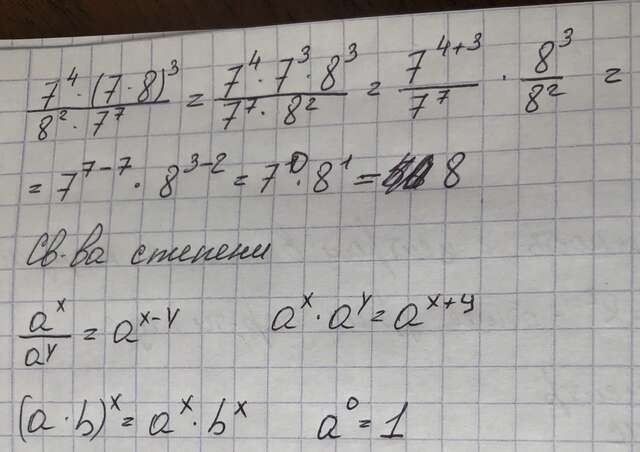 7⁴·(7·8)³/8²·7⁷ = 7⁴·7³·8³/7⁷·8² = 7⁴⁺³/7⁷ · 8³/8² =
= 7⁷⁻⁷ · 8³⁻² = 7⁰·8¹ = 8
Св-ва степени
aˣ/aʸ = aˣ⁻ʸ aˣ·aʸ = aˣ⁺ʸ
(a·b)ˣ = aˣ·bˣ a⁰ = 1